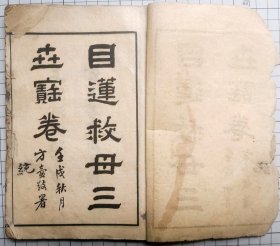 目蓮救母三
世寶卷
壬戌秋月
方
署